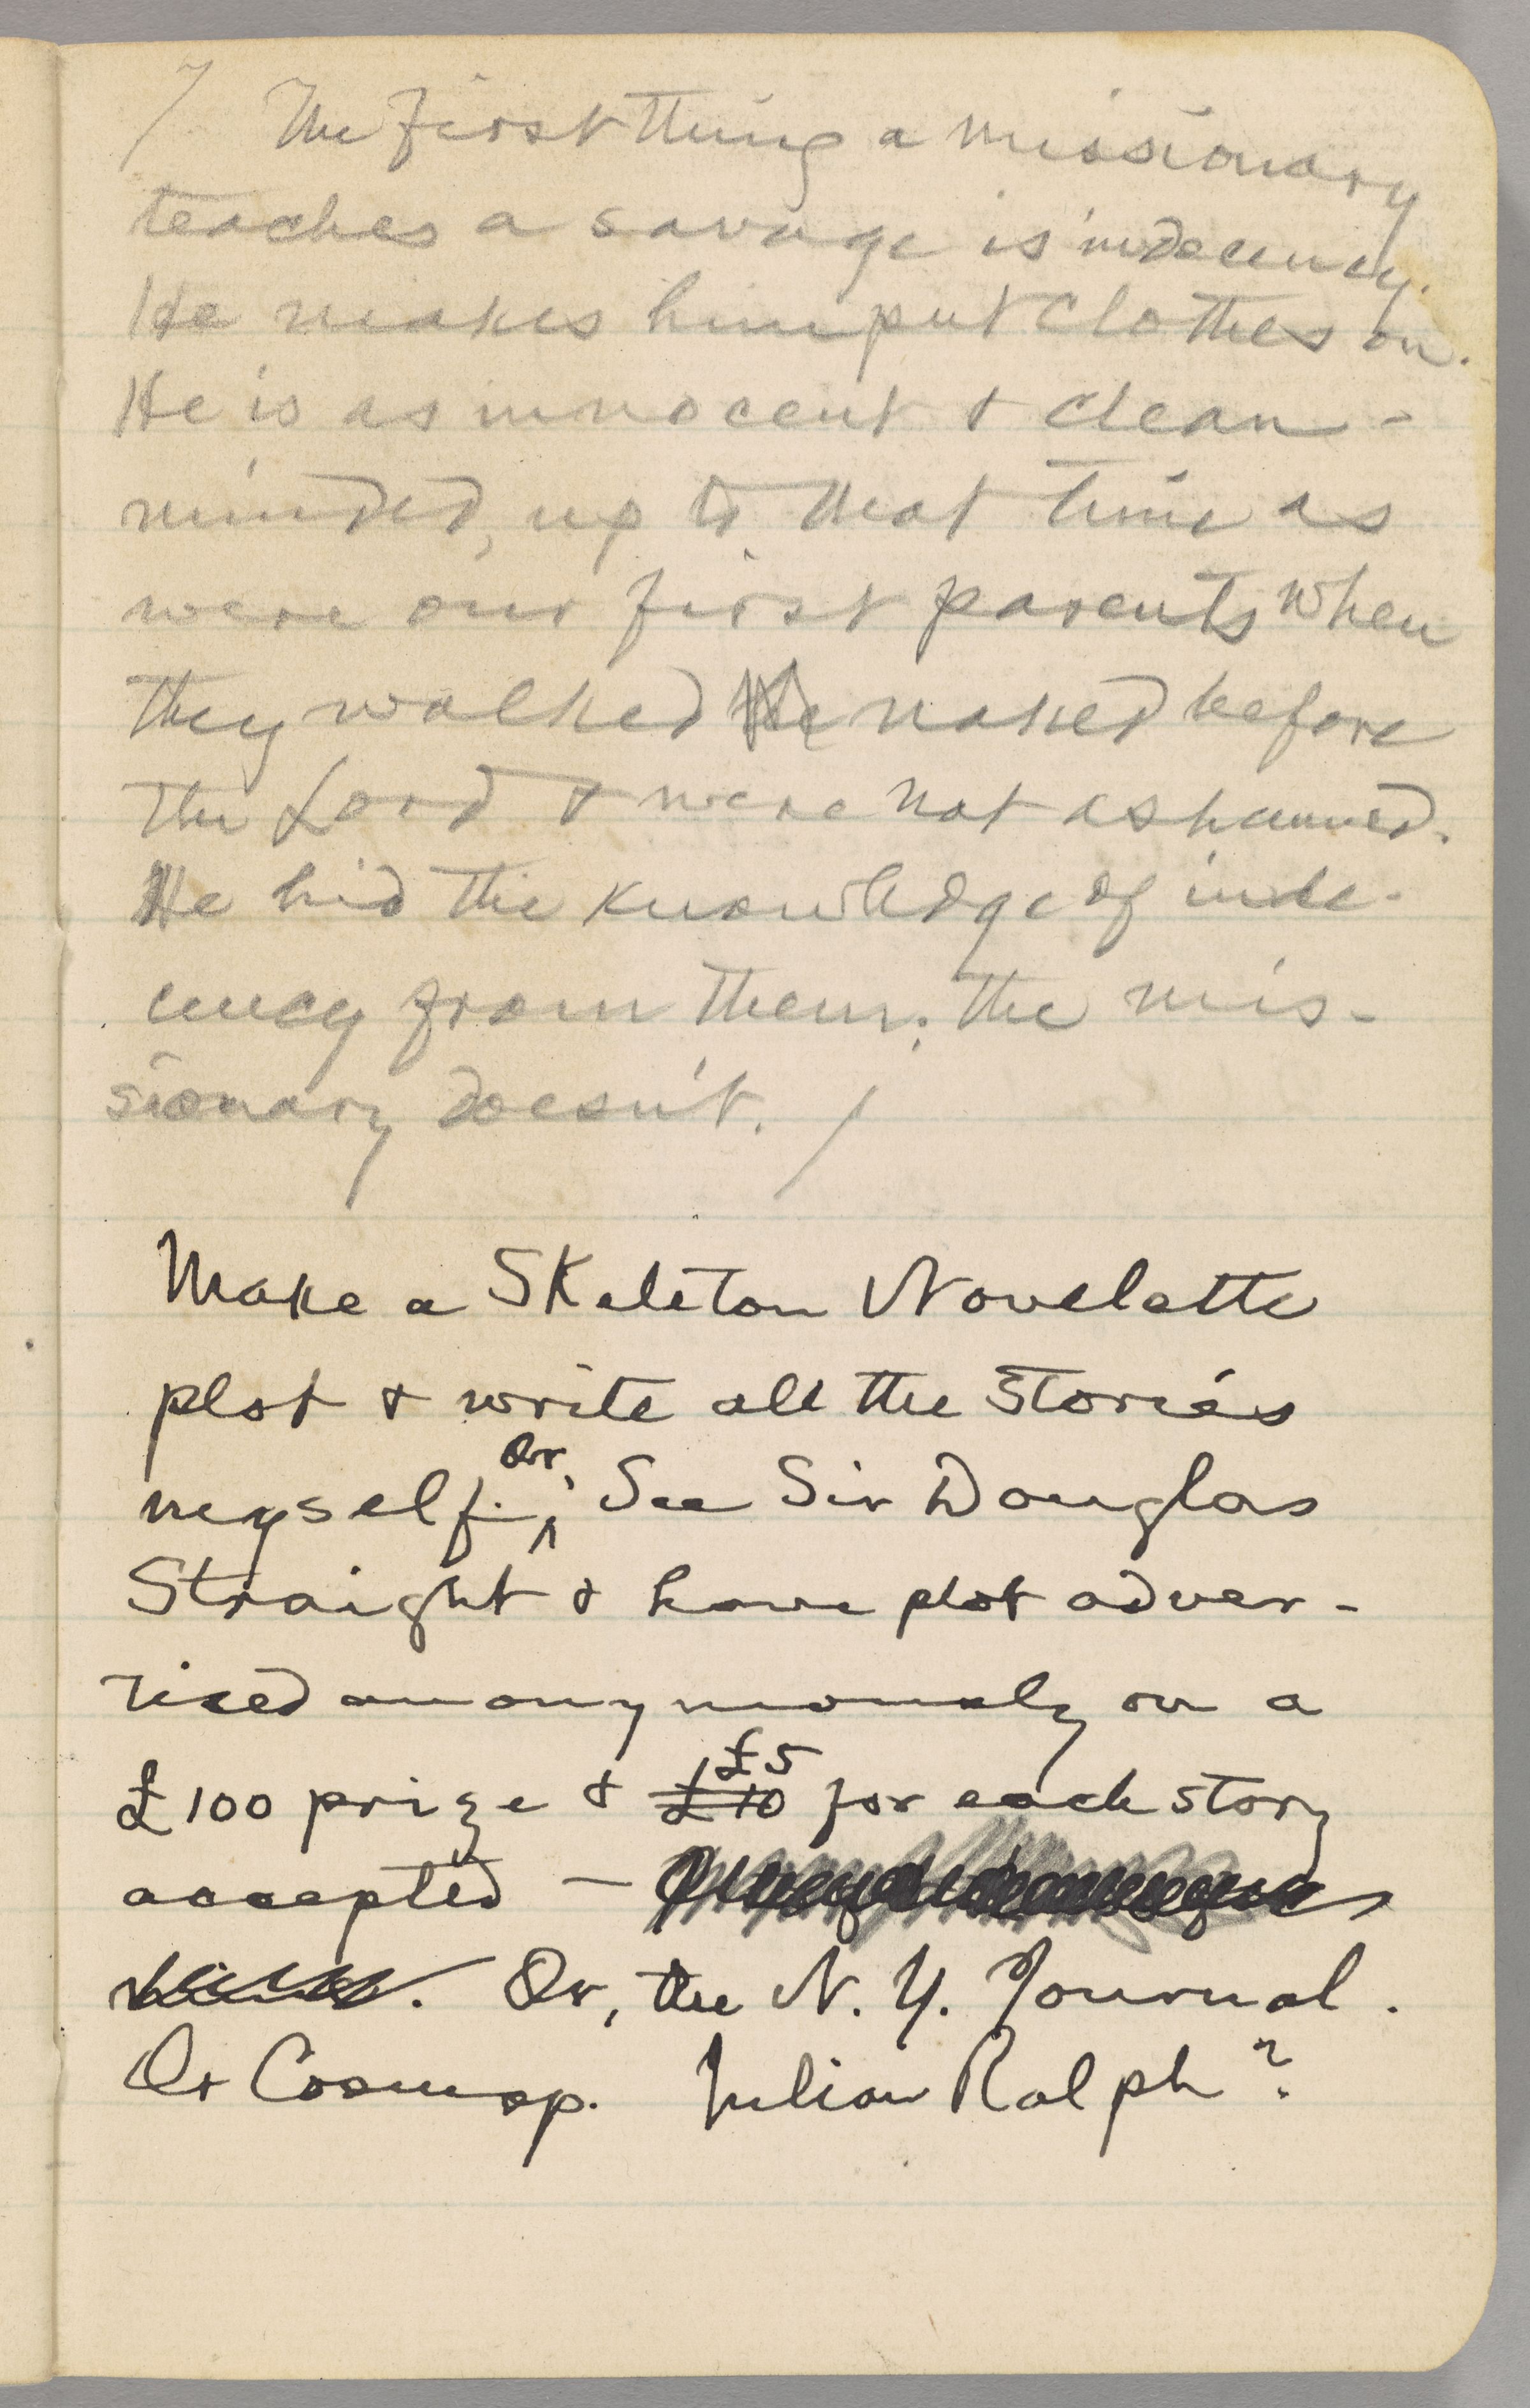 / The first thing a missionary
teaches a savage is indecency.
He makes him put clothes on.
He is as innocent & clean-
minded, up to that time as
were our first parents when
they walked naked before
the Lord & were not ashamed.
He hid the knowledge of inde-
cency from them; the mis-
sionary doesn't. /
Make a Skeleton Novelette
plot & write all the stories
myself. Or, See Sir Douglas
Straight & have plot adver-
tised anonymously on a
£100 prize & £10 £5 for each story
accepted —
Or, the N. Y. Journal.
Or Cosmop. Julian Ralph?